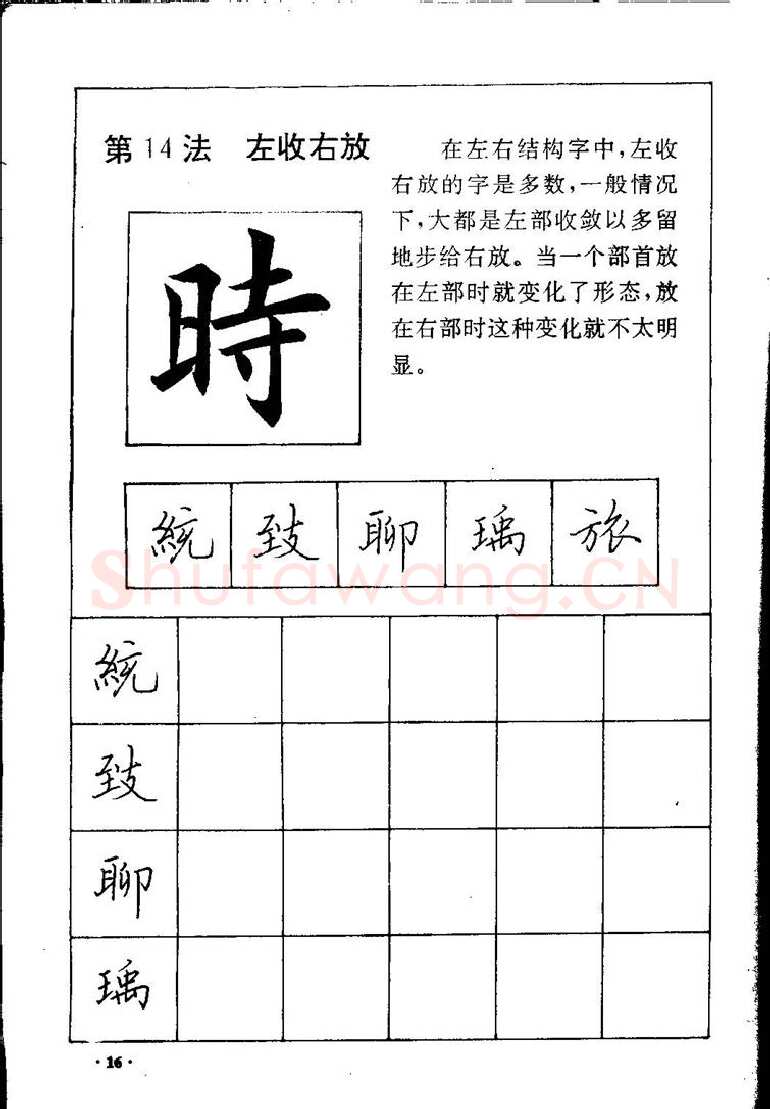 第14法 左收右放
在左右结构字中,左收
右放的字是多数,一般情况
下,大都是左部收敛以多留
地步给右放。当一个部首放
在左部时就变化了形态,放
在右部时这种变化就不太明
显。
時
統 致 聊 瑀 旅
Shufawang.CN
統
致
聊
瑀
·16·